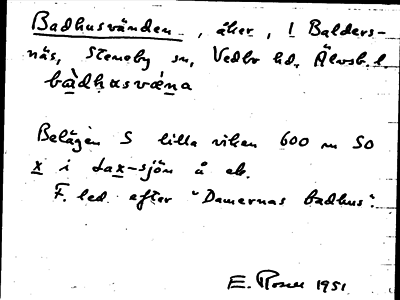 Badhusvänden, åker, 1 Balders-
näs, Steneby sn, Vedbo hd. Älvsb. l.
bàdhɑsvǽna
Belägen S lilla viken 600 m SO
x i Lax-sjön å ek.
F. led efter "Damernas badhus".
E. Rosell 1951.